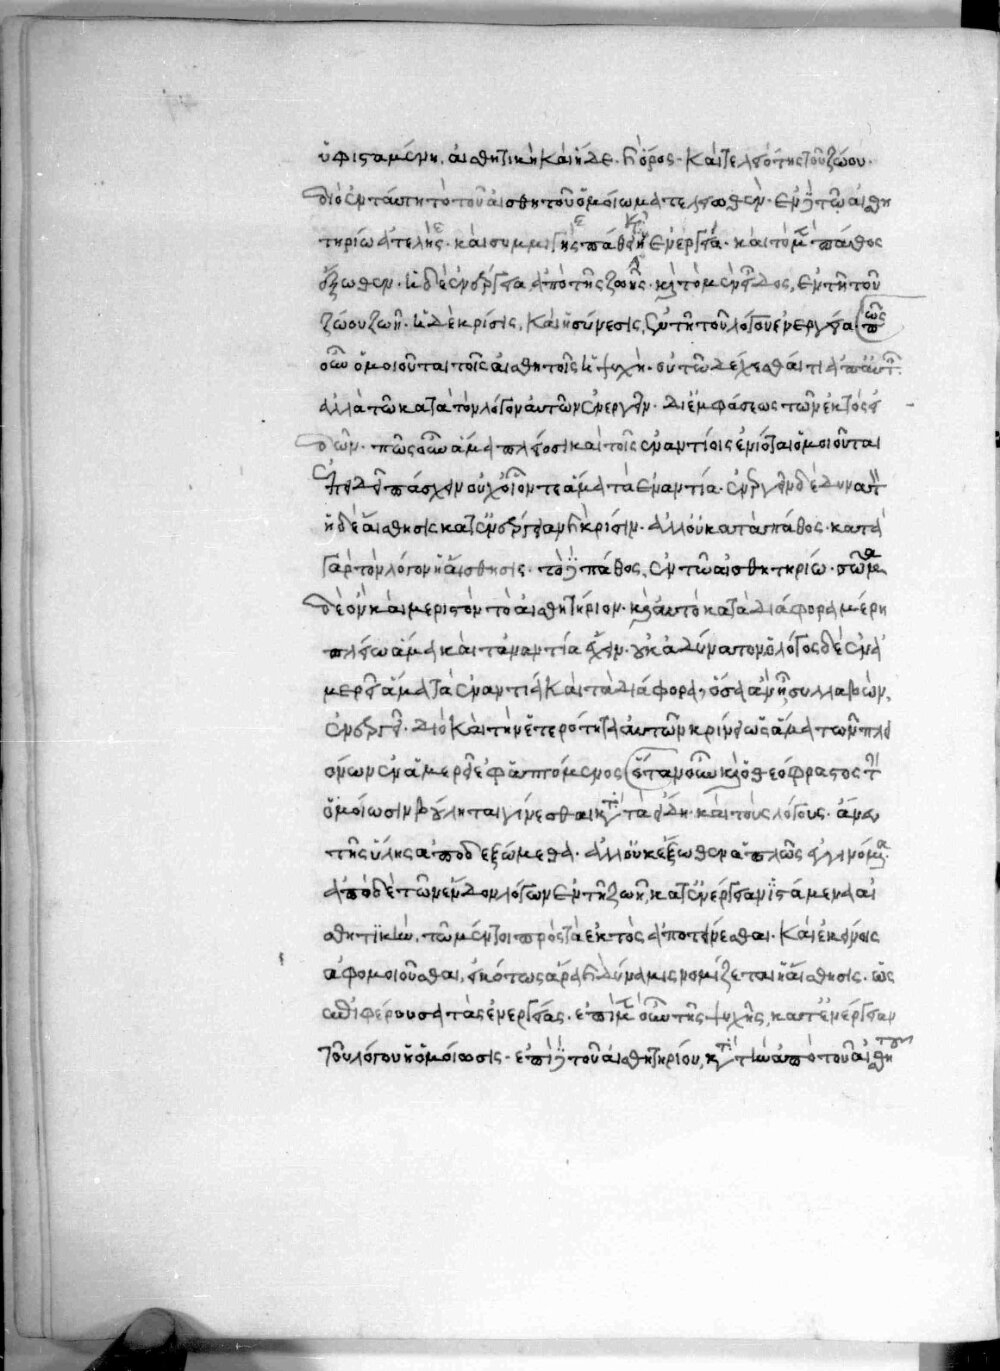 ὑφισταμένη, αἰσθητικὴ καὶ ἥδε· ἡ ὅρος· καὶ τελειότης τοῦ ζώου·
διὸ ἐν ταύτῃ τὸ τοῦ αἰσθητοῦ ὁμοίωμα τελειωθέν· ἐν τῷ αἰσθη
τηρίῳ ἀτελὴς· καὶ συμμιγὴς πάθει ἐνέργεια· καὶ τὸ μὲν πάθος
ἔξωθεν· ἡ δὲ ἐνέργεια, ἀπὸ τῆς ζωῆς· καὶ τὸ μὲν εἶδος, ἐν τῇ τοῦ
ζώου ζωῇ· ἡ δὲ κρίσις, καὶ ἡ σύνεσις, ἐν τῇ τοῦ λόγου ἐνεργείᾳ· πῶς
οὖν ὁμοιοῦται τοῖς αἰσθητοῖς ἡ ψυχή· οὐ τῷ δέχεσθαί τι ἀπ' αὐτῶν
ἀλλὰ τῷ κατὰ τὸν λόγον αὐτῶν ἐνεργεῖν· δι' ἐμφάσεως τῶν ἐκτὸς εἰ
δῶν· πῶς οὖν ἅμα πλείοσι καὶ τοῖς ἐναντίοις ἐνίοτε ὁμοιοῦται
ἐπειδὴ πάσχειν οὐχ οἷόν τε ἅμα τὰ ἐναντία· ἐνεργεῖν δὲ δυνατὸν
ἡ δὲ αἴσθησις κατ' ἐνέργειαν ἡ κρίσιν· ἀλλ' οὐ κατὰ πάθος· κατὰ
γὰρ τὸν λόγον ἡ αἴσθησις· τὸ πάθος, ἐν τῷ αἰσθητηρίῳ· σῶμα
δὲ ὂν καὶ μεριστὸν τὸ αἰσθητήριον· καὶ αὐτὸ κατὰ διάφορα μέρη
πλείω ἅμα καὶ τἀναντία ἔχειν· οὐκ ἀδύνατον· ὁ λόγος δὲ ἐν ἀ
μερεῖ ἅμα τὰ ἐναντία καὶ τὰ διάφορα, ὅσα ἂν ᾖ συλλαβὼν,
ἐνεργεῖ· διὸ καὶ τὴν ἑτερότητα αὐτῶν κρίνει ὡς ἅμα τῶν πλει
όνων ἐν ἀμερεῖ ἐφαπτόμενος ὅταν οὖν καὶ ὁ Θεόφραστος τὴν
ὁμοίωσιν βούληται γίνεσθαι κατὰ τὰ εἴδη· καὶ τοὺς λόγους· ἄνευ
τῆς ὕλης ἀποδεξώμεθα· ἀλλ' οὐκ ἔξωθεν ἁπλῶς γινόμενα·
ἀπὸ δὲ τῶν ἔνδον λόγων ἐν τῇ ζωῇ, κατ' ἐνέργειαν ἱστάμενα αἰ
σθητικῶ, τῷ μέντοι πρὸς τὰ ἐκτὸς ἀποτείνεσθαι· καὶ ἐκείνοις
ἀφομοιοῦσθαι, εἰκότως ἄρα ἡ δύναμις νομίζεται ἡ αἴσθησις· ὡς
ἐπιφέρουσα τὰς ἐνεργείας· ἐπὶ μὲν οὖν τῆς ψυχῆς, κατ' ἐνέργειαν
τοῦ λόγου ἡ ὁμοίωσις· ἐπὶ τοῦ αἰσθητηρίου, κατὰ τὴν ἀπὸ τοῦ αἰσθητοῦ